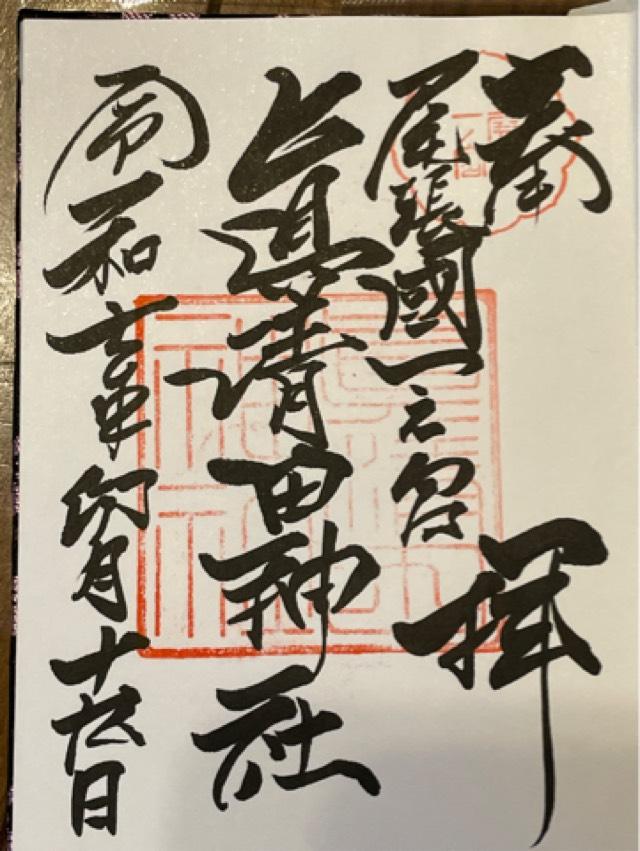 奉拝
尾張國一之宮
眞清田神社
令和六年卯月十九日